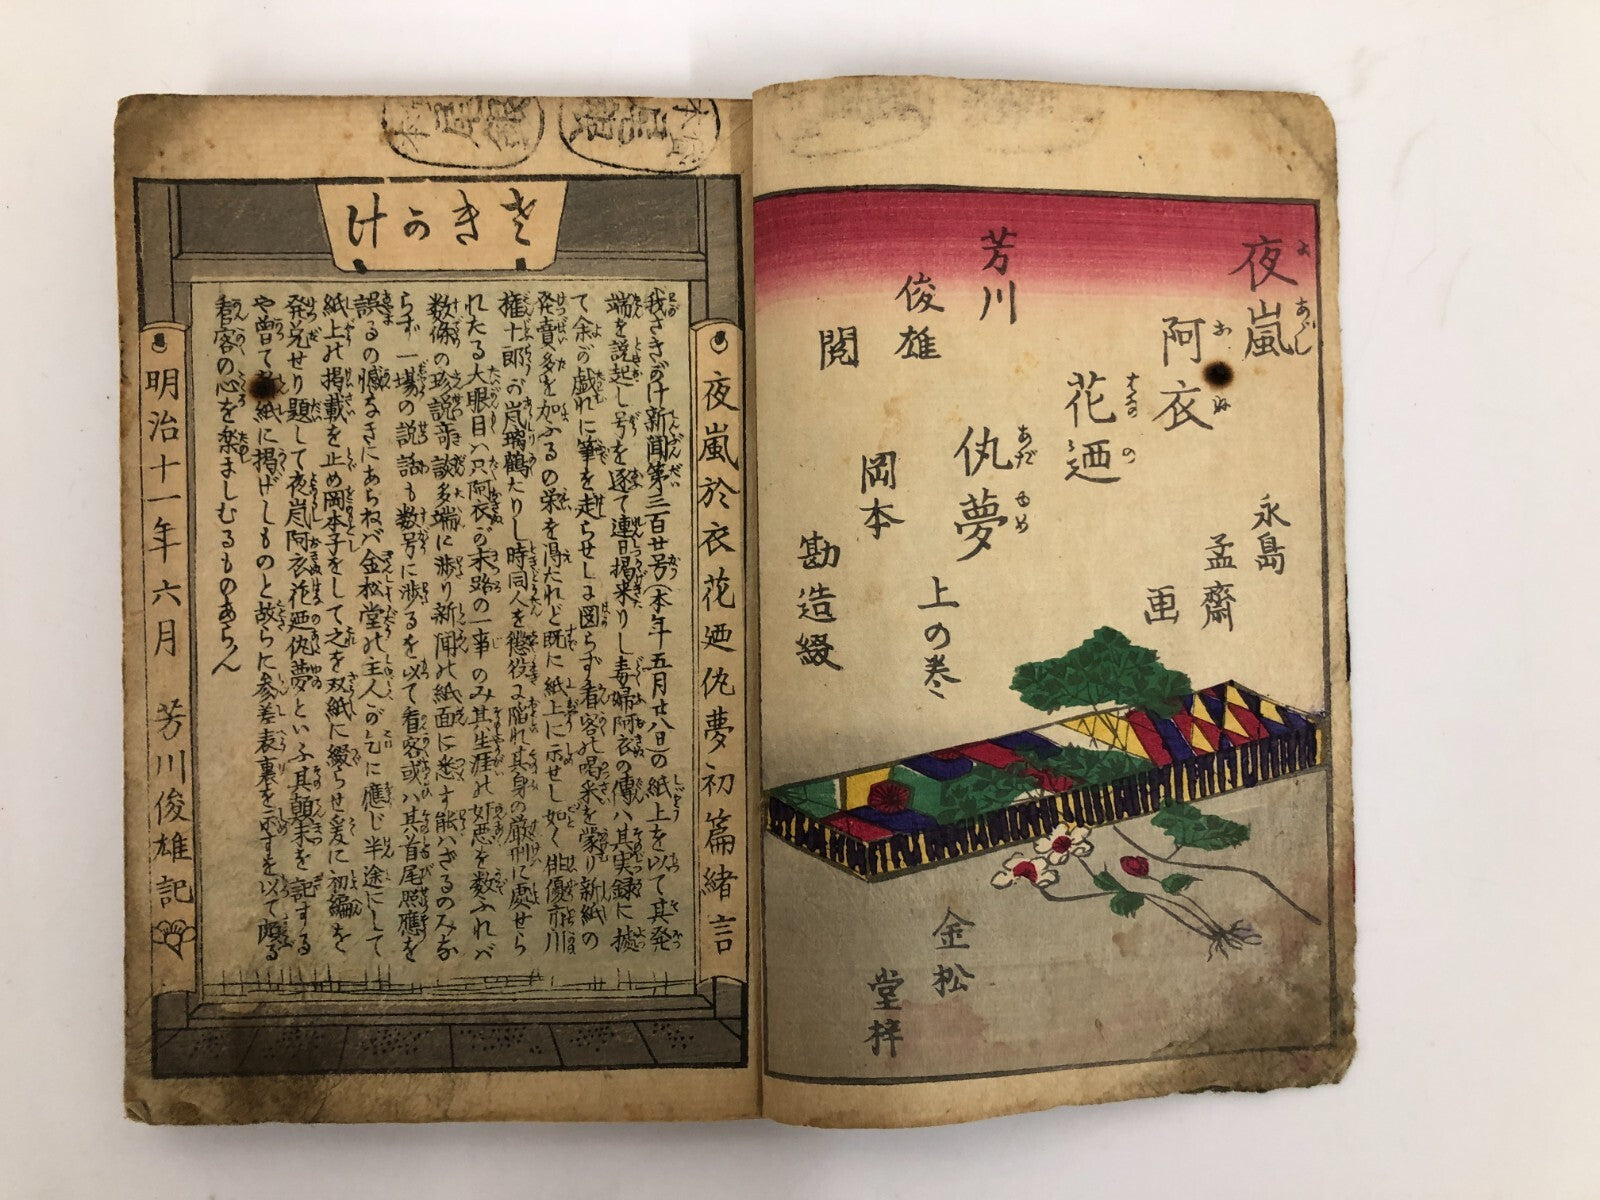 夜嵐
阿衣
花廼
仇夢
上の巻
芳川
俊雄
閲
岡本
勘造綴
永島
孟齋
画
金松
堂梓
さきがけ
夜嵐於衣花廼仇夢初篇緒言
我さきがけ新聞第三百廿号(本年五月廿八日)の紙上を以て其発
端を説起し号を逐て連日掲来りし毒婦阿衣の傳ハ其実録に拠
て余が戯れに筆を走らせしに図らず看客の喝采を蒙り新紙の
発賣多を加ふるの栄を得たれど既に紙上に示せし如く俳優市川
権十郎が嵐璃鶴たりし時同人を懲役に陥れ其身の厳刑に處せら
れたる大眼目ハ只阿衣が末路の一事のみ其生涯の奸悪を数ふれバ
数條の珍説奇談多端に渉り新聞の紙面に悉す能ハざるのみな
らず一場の説話も数号に渉るを以て看客或ハ其首尾照應を
誤るの憾なきにあらねバ金松堂の主人が乞に應じ半途にして
紙上の掲載を止め岡本子をして之を双紙に綴らせ爰に初編を
発兌せり題して夜嵐阿衣花廼仇夢といふ其顛末を記する
や曽て新紙に掲げしものと故らに参差表裏を示すを以て頗る
看客の心を楽ましむるものあらん
明治十一年六月 芳川俊雄記